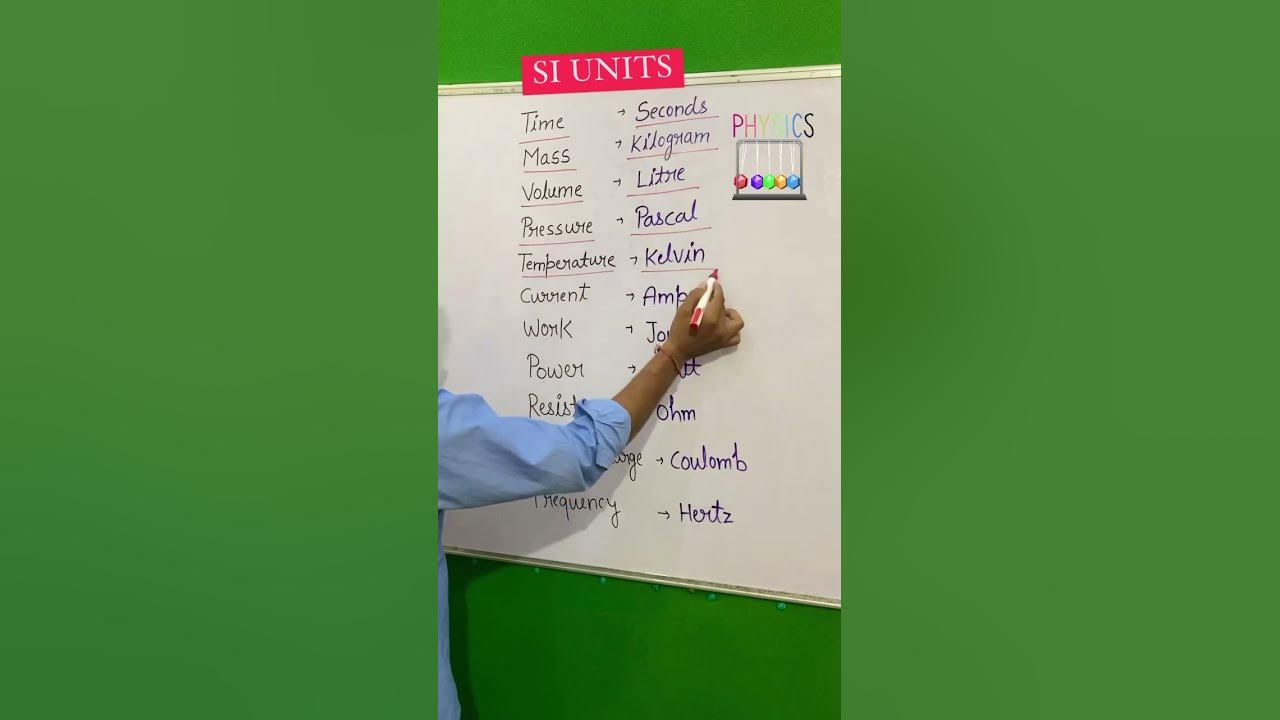 SI UNITS
PHYSICS
Time → Seconds
Mass → Kilogram
Volume → Litre
Pressure → Pascal
Temperature → Kelvin
Current →
Work →
Power →
Ohm
→ Coulomb
Frequency → Hertz